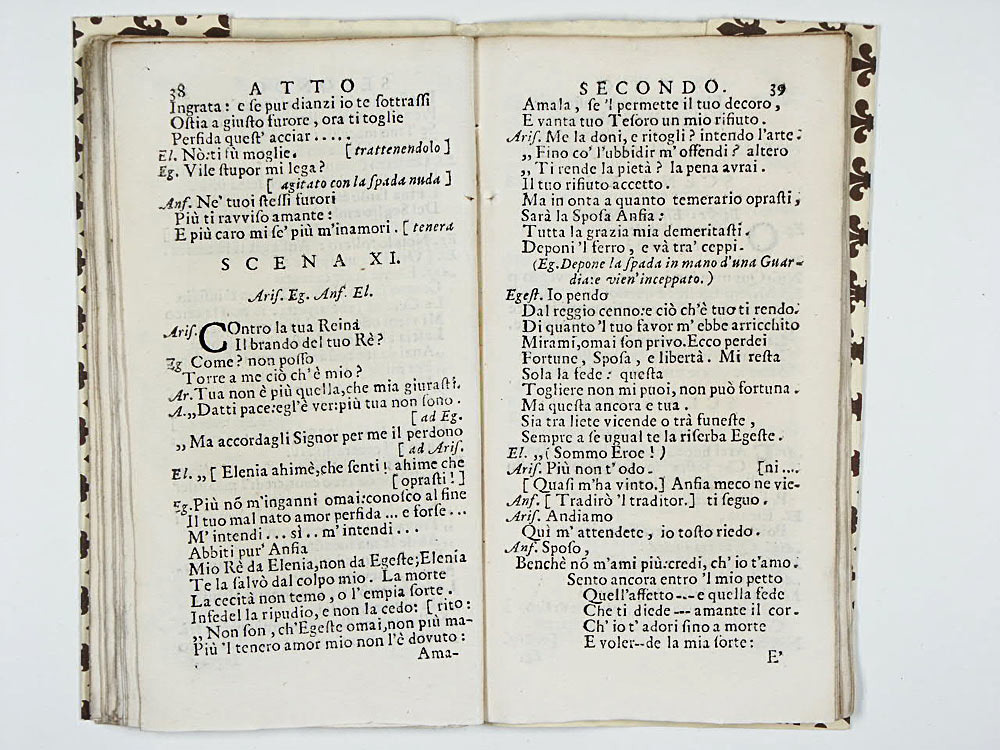 38 ATTO
Ingrata: e ſe pur dianzi io te ſottraſſi
Oſtia a giuſto furore, ora ti toglie
Perfida queſt' acciar .....
El. Nò: ti ſù moglie. [trattenendolo]
Eg. Vile ſtupor mi lega?
[ agitato con la ſpada nuda ]
Anſ. Ne' tuoi ſteſſi furori
Più ti ravviſo amante:
E più caro mi ſe' più m'inamori. [ tenera
SCENA XI.
Ariſ. Eg. Anſ. El.
Ariſ. COntro la tua Reina
Il brando del tuo Rè?
Eg Come? non poſſo
Torre a me ciò ch'è mio?
Ar. Tua non è più quella, che mia giuraſti.
A. „Datti pace: egl'è ver: più tua non ſono.
[ ad Eg.
„Ma accordagli Signor per me il perdono
[ ad Ariſ.
El. „[ Elenia ahimè, che ſenti! ahime che
[opraſti!]
Eg. Più nõ m'inganni omai: conoſco al fine
Il tuo mal nato amor perfida ... e forſe...
M' intendi... sì.. m' intendi...
Abbiti pur' Anſia
Mio Rè da Elenia, non da Egeſte; Elenia
Te la ſalvò dal colpo mio. La morte
La cecità non temo, o l'empia ſorte.
Infedel la ripudio, e non la cedo: [ rito:
„Non ſon, ch'Egeſte omai, non più ma-
Più 'l tenero amor mio non l'è dovuto:
Ama-
SECONDO. 39
Amala, ſe 'l permette il tuo decoro,
E vanta tuo Teſoro un mio rifiuto.
Ariſ. Me la doni, e ritogli? intendo l'arte:
„Fino co' l'ubbidir m' offendi? altero
„Ti rende la pietà? la pena avrai.
Il tuo rifiuto accetto.
Ma in onta a quanto temerario opraſti,
Sarà la Spoſa Anſia:
Tutta la grazia mia demeritaſti.
Deponi 'l ferro, e và tra' ceppi.
(Eg. Depone la ſpada in mano d'una Guar-
dia: e vien' inceppato.)
Egeſt. Io pendo
Dal reggio cenno: e ciò ch'è tuo ti rendo:
Di quanto 'l tuo favor m' ebbe arricchito
Mirami, omai ſon privo. Ecco perdei
Fortune, Spoſa, e libertà. Mi reſta
Sola la fede: queſta
Togliere non mi puoi, non può fortuna.
Ma queſta ancora e tua.
Sia tra liete vicende o trà funeſte,
Sempre a ſe ugual te la riſerba Egeſte.
El. „( Sommo Eroe! )
Ariſ. Più non t' odo. [ni ....
[ Quaſi m'ha vinto.] Anſia meco ne vie-
Anſ. [ Tradirò 'l traditor.] ti ſeguo.
Ariſ. Andiamo
Quì m' attendete, io toſto riedo.
Anſ. Spoſo,
Benchè nõ m'ami più: credi, ch' io t'amo.
Sento ancora entro 'l mio petto
Quell'affetto --- e quella fede
Che ti diede --- amante il cor.
Ch' io t' adori ſino a morte
E voler--de la mia ſorte:
E'